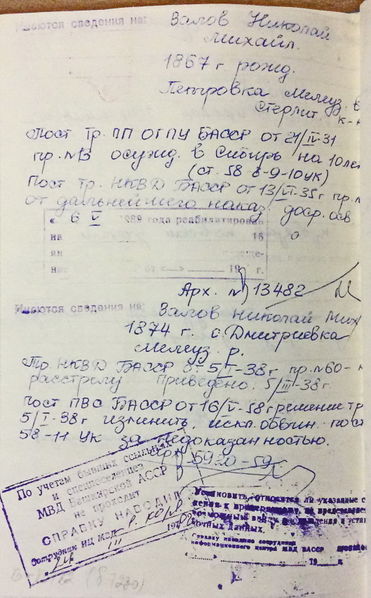 Имеются сведения на: Залов Николай
Михайл.
1867 г. рожд.
Петровка Мелеуз. в
Стерлит к-н
Пост Тр. ПП ОГПУ БАССР от 21/VI-31
пр. №13 осужд. в Сибирь на 10 лет
(ст. 58 8-9-10 УК)
Пост Тр. НКВД БАССР от 13/VI-35 г пр. №
от дальнейшего наказ. доср. осв
« 6 V 1989 года реабилитирован
на 16
ян
ния от « » 19 г.
Арх. № 13482
Имеются сведения на: Залов Николай Мих
1874 г. с. Дмитриевка
Мелеуз. р.
Тр. НКВД БАССР от 5/I-38 г пр. №60-
расстрелу приведено. 5/III-38 г.
Пост ПВС БАССР от 16/V-58 г решение тр
5/I-38 г изменить, искл. обвин. по
58-11 УК за недоказанностью.
5920-59
По учетам бывших ссыльных
и спецпоселенцев
МВД Башкирской АССР
не проходит
СПРАВКУ НАВОДИЛ
Сотрудник ИЦ МВД
Установить, относятся ли указанные с
дения к
не представляется
возможным ввиду
и уста
ночных данных.
Справку наводил сотрудник
информационного центра МВД БАССР
19 г.